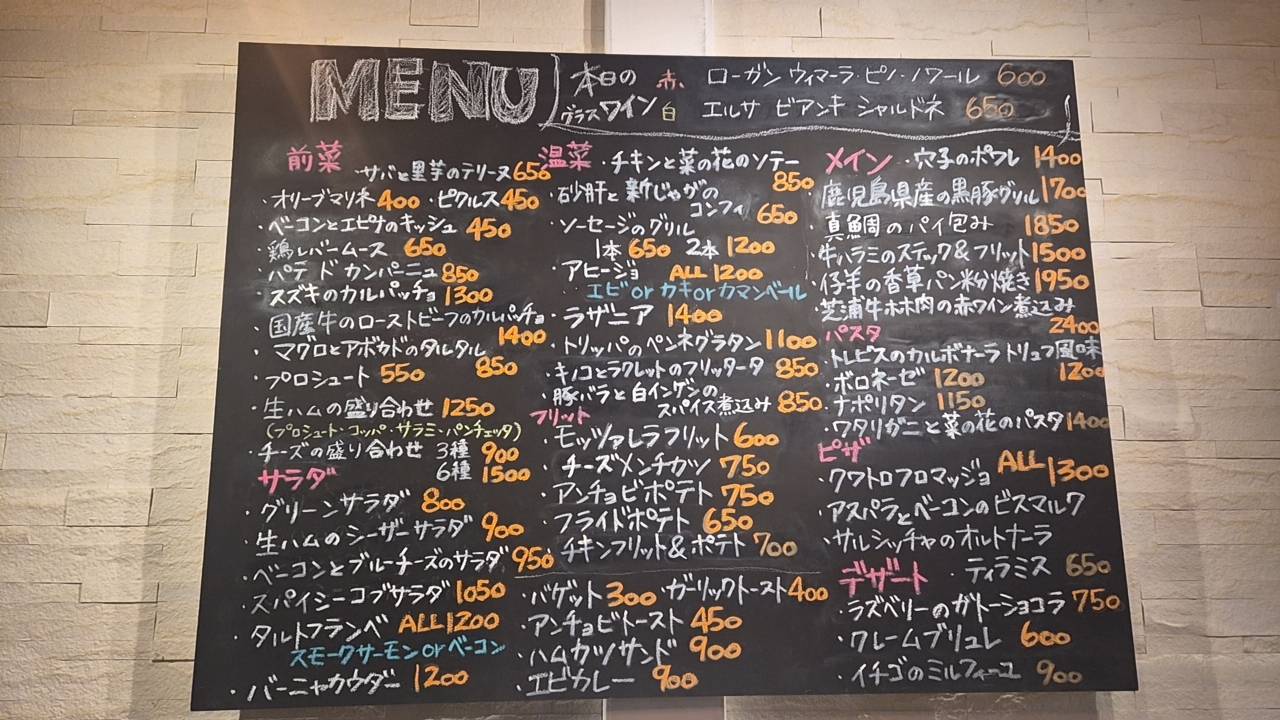 MENU
本日の
グラスワイン
赤 ローガン ウィマーラ・ピノ・ノワール 600
白 エルサ ビアンキ シャルドネ 650
前菜
・サバと里芋のテリーヌ 650
・オリーブマリネ 400 ・ピクルス 450
・ベーコンとエビサのキッシュ 450
・鶏レバームース 650
・パテ ド カンパーニュ 850
・スズキのカルパッチョ 1300
・国産牛のローストビーフのカルパッチョ
1400
・マグロとアボカドのタルタル
850
・プロシュート 550
・生ハムの盛り合わせ 1250
(プロシュート・コッパ・サラミ・パンチェッタ)
・チーズの盛り合わせ 3種 900
6種 1500
サラダ
・グリーンサラダ 800
・生ハムのシーザーサラダ 900
・ベーコンとブルーチーズのサラダ 950
・スパイシーコブサラダ 1050
・タルトフランベ ALL 1200
スモークサーモン or ベーコン
・バーニャカウダー 1200
温菜
・チキンと菜の花のソテー
850
・砂肝と新じゃがの
コンフィ 650
・ソーセージのグリル
1本 650 2本 1200
・アヒージョ ALL 1200
エビ or カキ or カマンベール
・ラザニア 1400
・トリッパのペンネグラタン 1100
・キノコとラクレットのフリッタータ 850
・豚バラと白インゲンの
スパイス煮込み 850
フリット
・モッツァレラフリット 600
・チーズメンチカツ 750
・アンチョビポテト 750
・フライドポテト 650
・チキンフリット&ポテト 700
・バゲット 300 ・ガーリックトースト 400
・アンチョビトースト 450
・ハムカツサンド 900
・エビカレー 900
メイン
・穴子のポワレ 1400
・鹿児島県産の黒豚グリル 1700
・真鯛のパイ包み 1850
・牛ハラミのステック&フリット 1500
・仔羊の香草パン粉焼き 1950
・芝浦牛ホホ肉の赤ワイン煮込み
2400
パスタ
・トレビスのカルボナーラ トリュフ風味
1200
・ボロネーゼ 1200
・ナポリタン 1150
・ワタリガニと菜の花のパスタ 1400
ピザ
・クワトロフロマッジョ ALL 1300
・アスパラとベーコンのビスマルク
・サルシッチャのオルトナーラ
デザート
・ティラミス 650
・ラズベリーのガトーショコラ 750
・クレームブリュレ 600
・イチゴのミルフィーユ 900